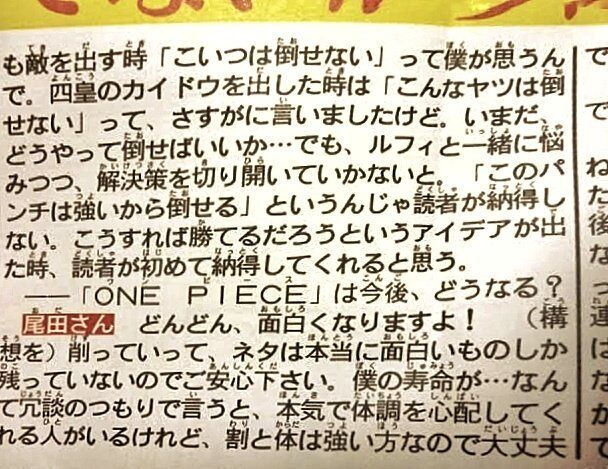 も敵を出す時「こいつは倒せない」って僕が思うん
で。四皇のカイドウを出した時は「こんなヤツは倒
せない」って、さすがに言いましたけど。いまだ、
どうやって倒せばいいか…でも、ルフィと一緒に悩
みつつ、解決策を切り開いていかないと。「このパ
ンチは強いから倒せる」というんじゃ読者が納得し
ない。こうすれば勝てるだろうというアイデアが出
た時、読者が初めて納得してくれると思う。
――「ONE PIECE」は今後、どうなる?
尾田さん どんどん、面白くなりますよ! (構
想を)削っていって、ネタは本当に面白いものしか
残っていないのでご安心下さい。僕の寿命が…なん
て冗談のつもりで言うと、本気で体調を心配してく
れる人がいるけれど、割と体は強い方なので大丈夫